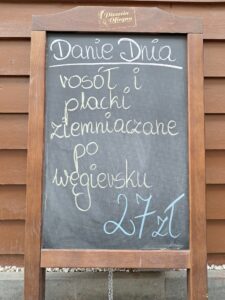 Pizzeria
Ofiegna
Danie Dnia
rosół i
placki
ziemniaczane
po
węgiersku
27 zł